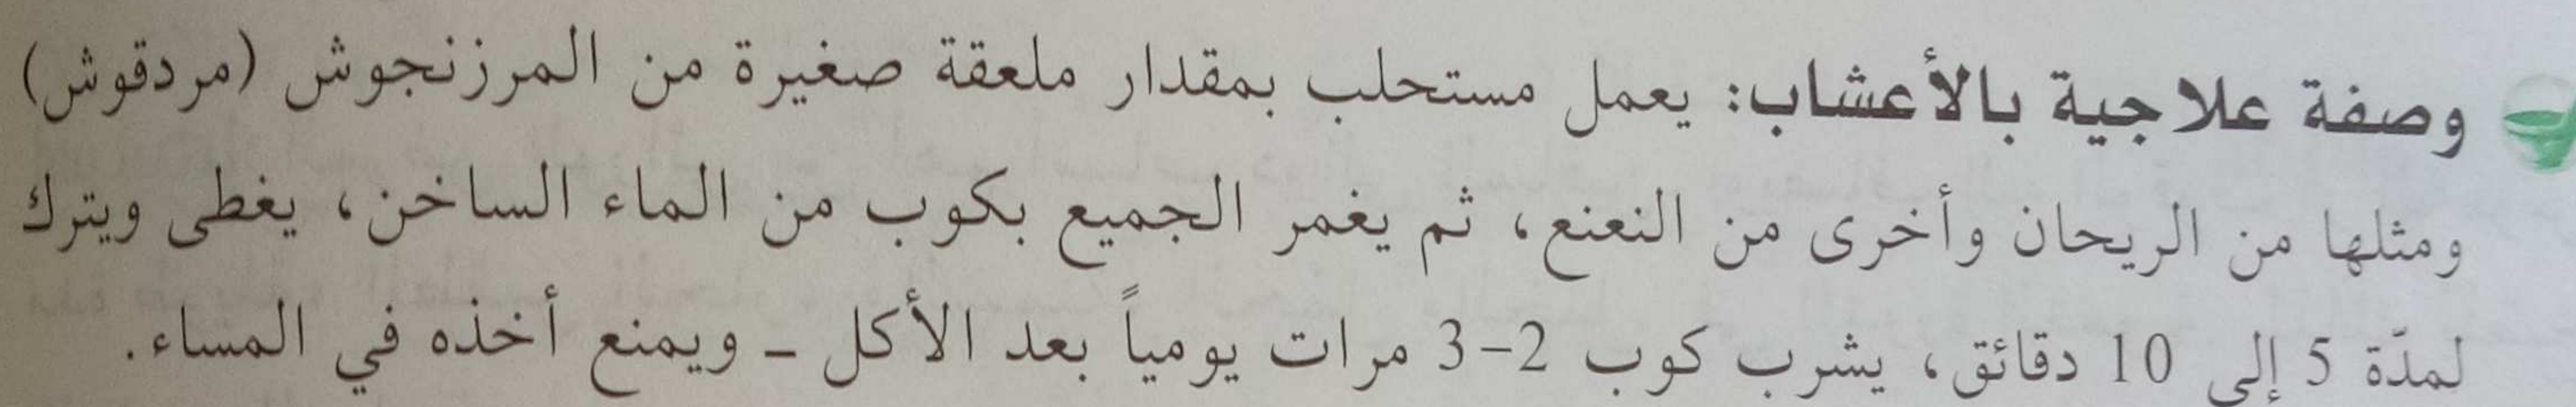 وصفة علاجية بالأعشاب: يعمل مستحلب بمقدار ملعقة صغيرة من المرزنجوش (مردقوش)
ومثلها من الريحان وأخرى من النعنع، ثم يغمر الجميع بكوب من الماء الساخن، يغطى ويترك
لمدّة 5 إلى 10 دقائق، يشرب كوب 2-3 مرات يومياً بعد الأكل - ويمنع أخذه في المساء.